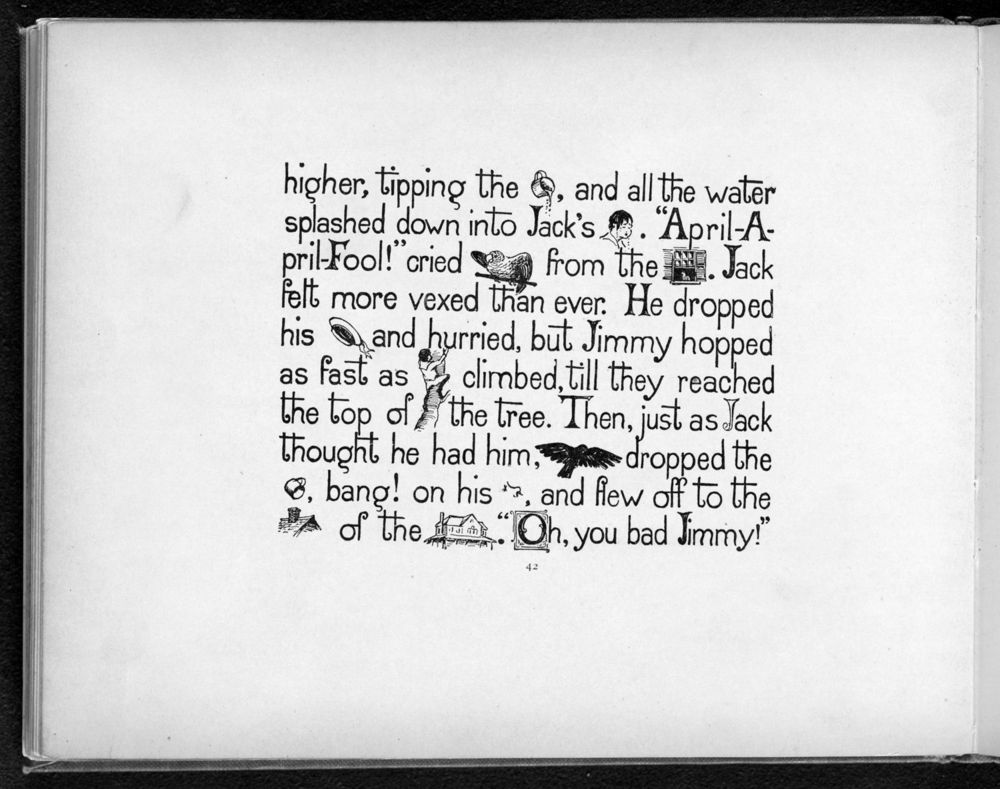 higher, tipping the , and all the water
splashed down into Jack's . "April-A-
pril-Fool!" cried from the . Jack
felt more vexed than ever. He dropped
his and hurried, but Jimmy hopped
as fast as climbed, till they reached
the top of the tree. Then, just as Jack
thought he had him, dropped the
, bang! on his , and flew off to the
of the . "Oh, you bad Jimmy!"
42